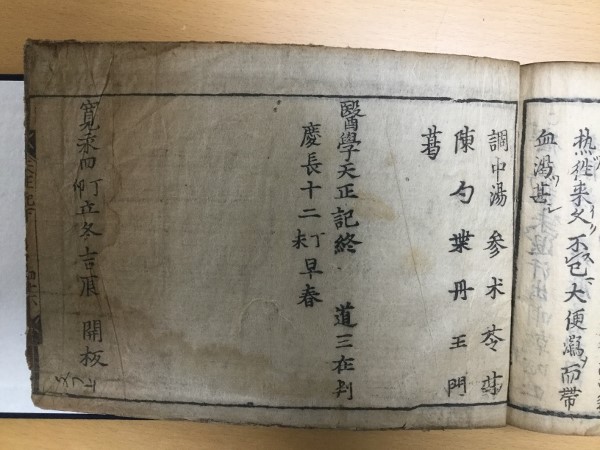 热往来久不已大便瀉而帶
血渴甚
調中湯參朮苓
陳勺葉丹王門
葛
醫學天正記終 道三在判
慶長十二丁未早春
寛永四丁卯立冬吉辰 開板